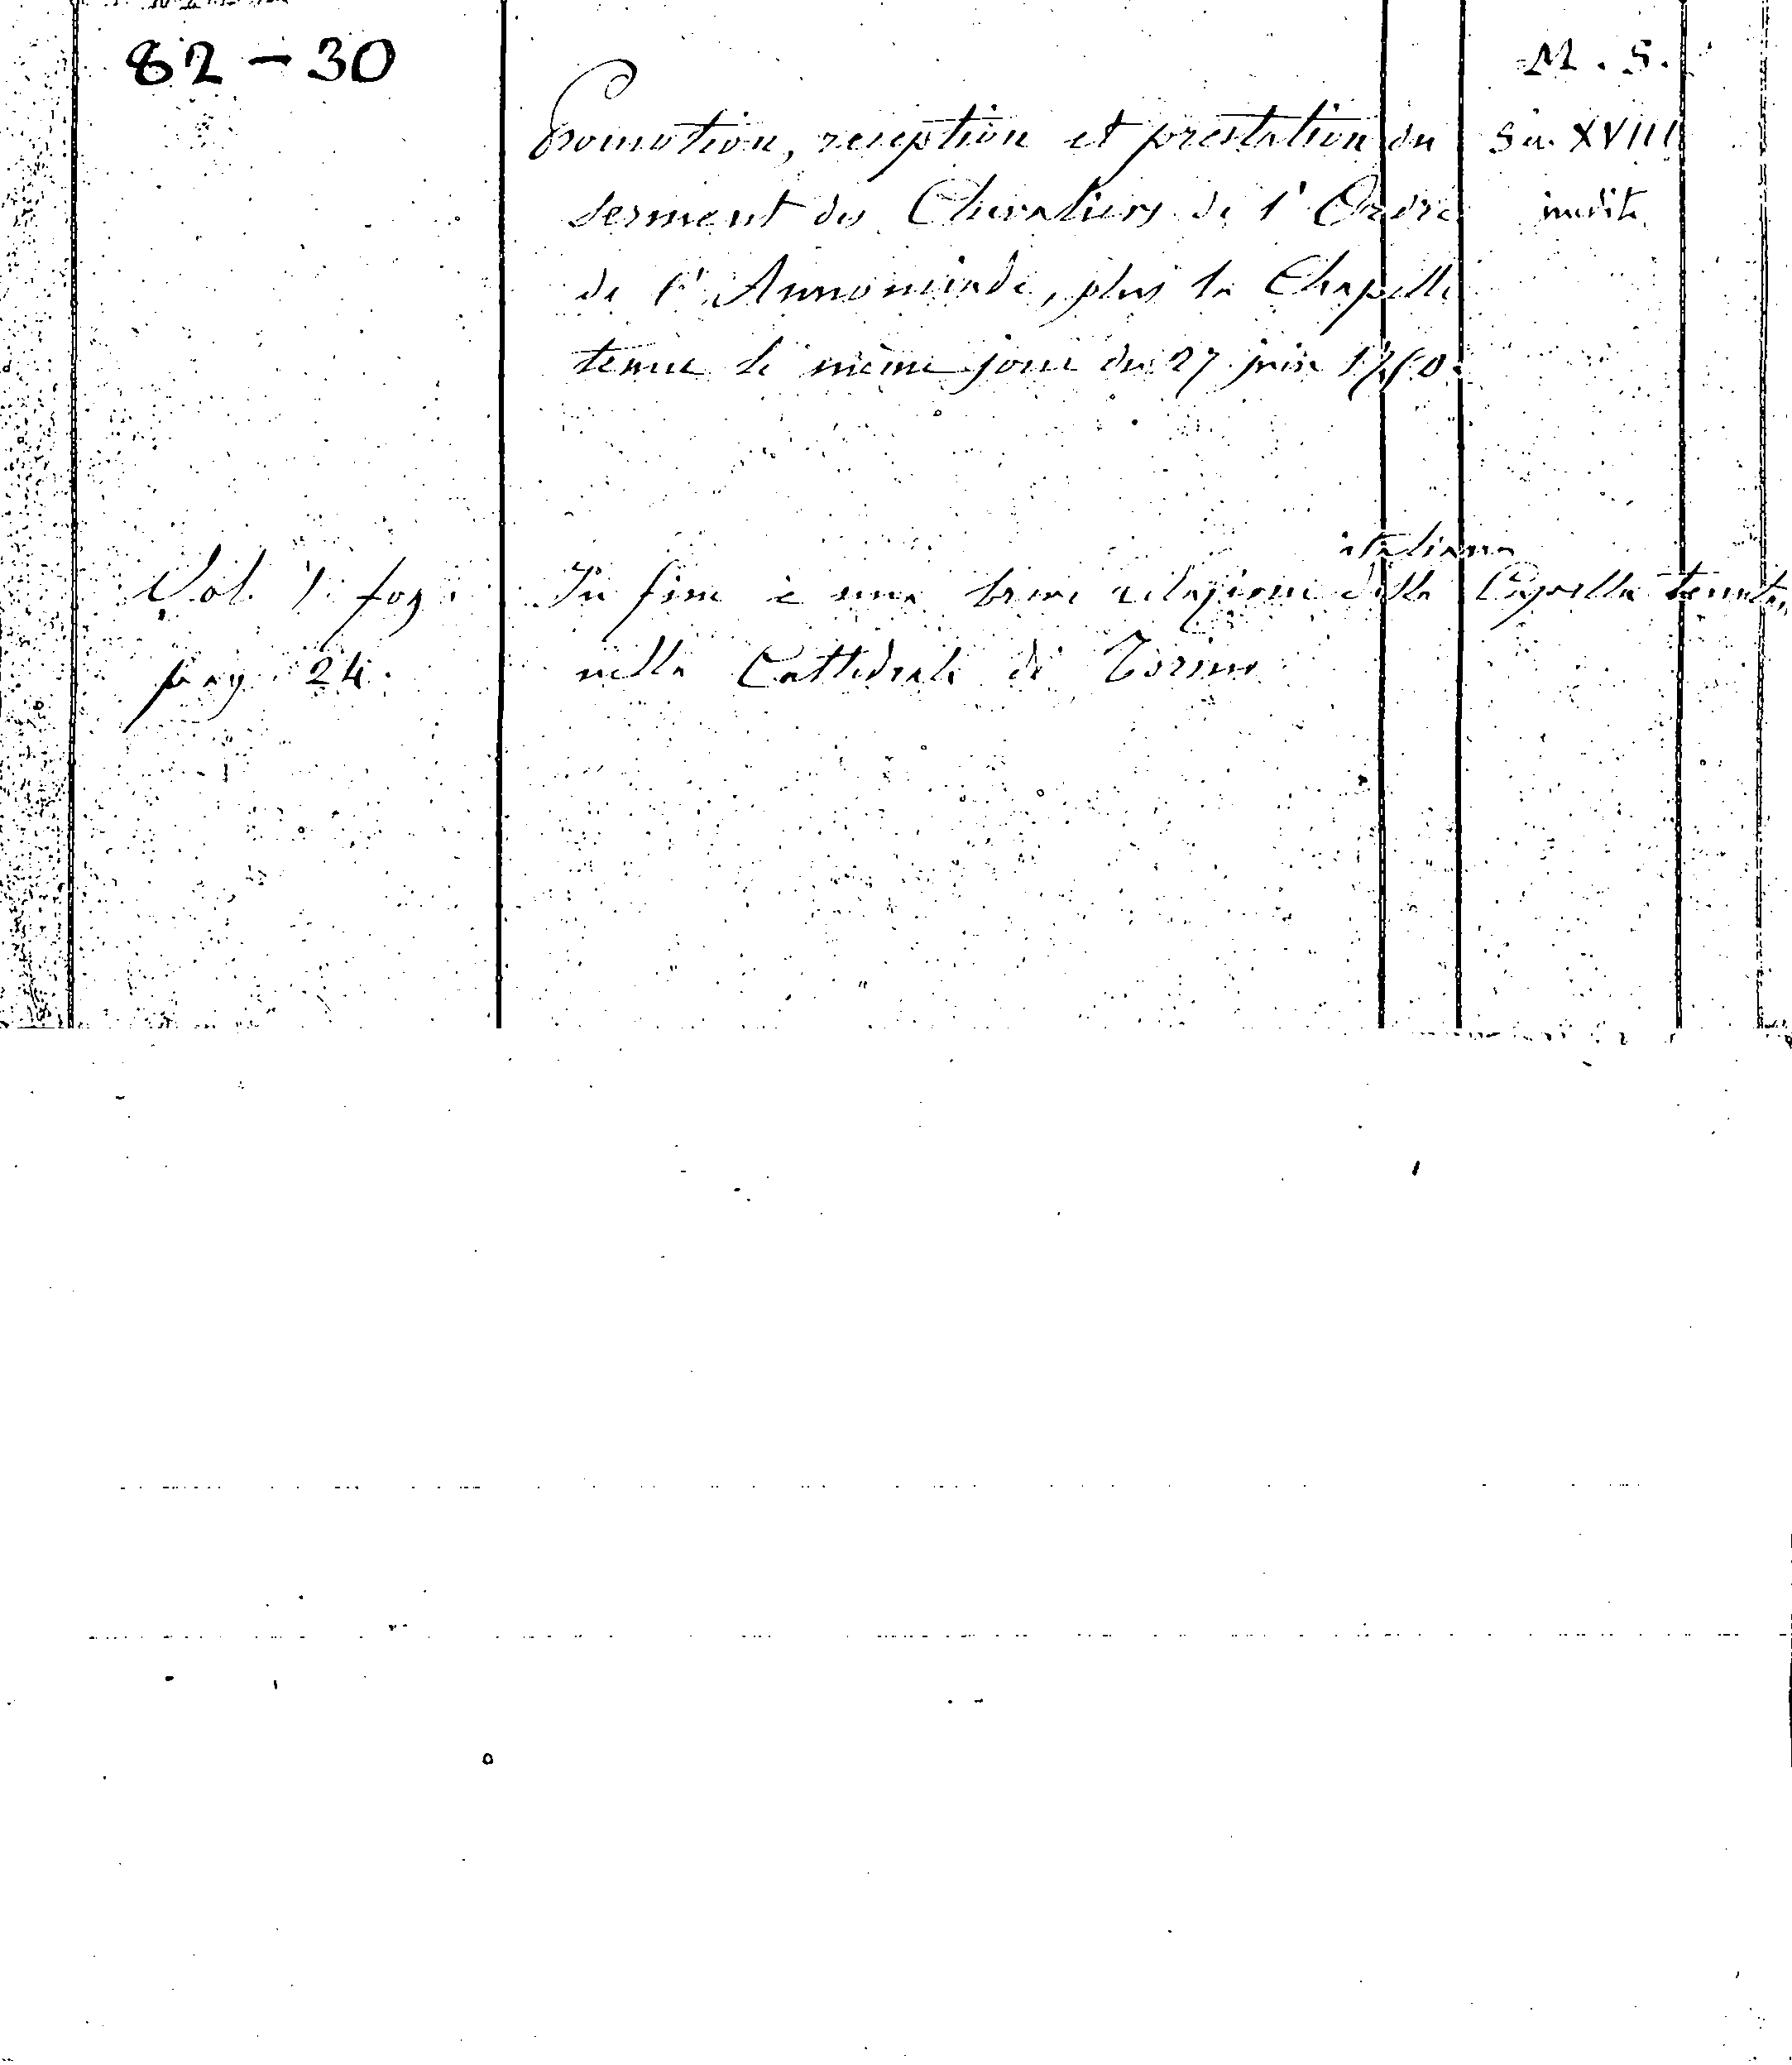 82 - 30
M. S.
Promotion, reception et prestation du
Sec. XVIII
serment des Chevaliers de l'Ordre
inedito
de l'Annonciade, plus la Chapelle
tenue le même jour du 27 juin
italiana
Vol. 1. fog.
In fine è una breve relazione della Capella tenuta
pag. 24.
nella Cattedrale di Torino